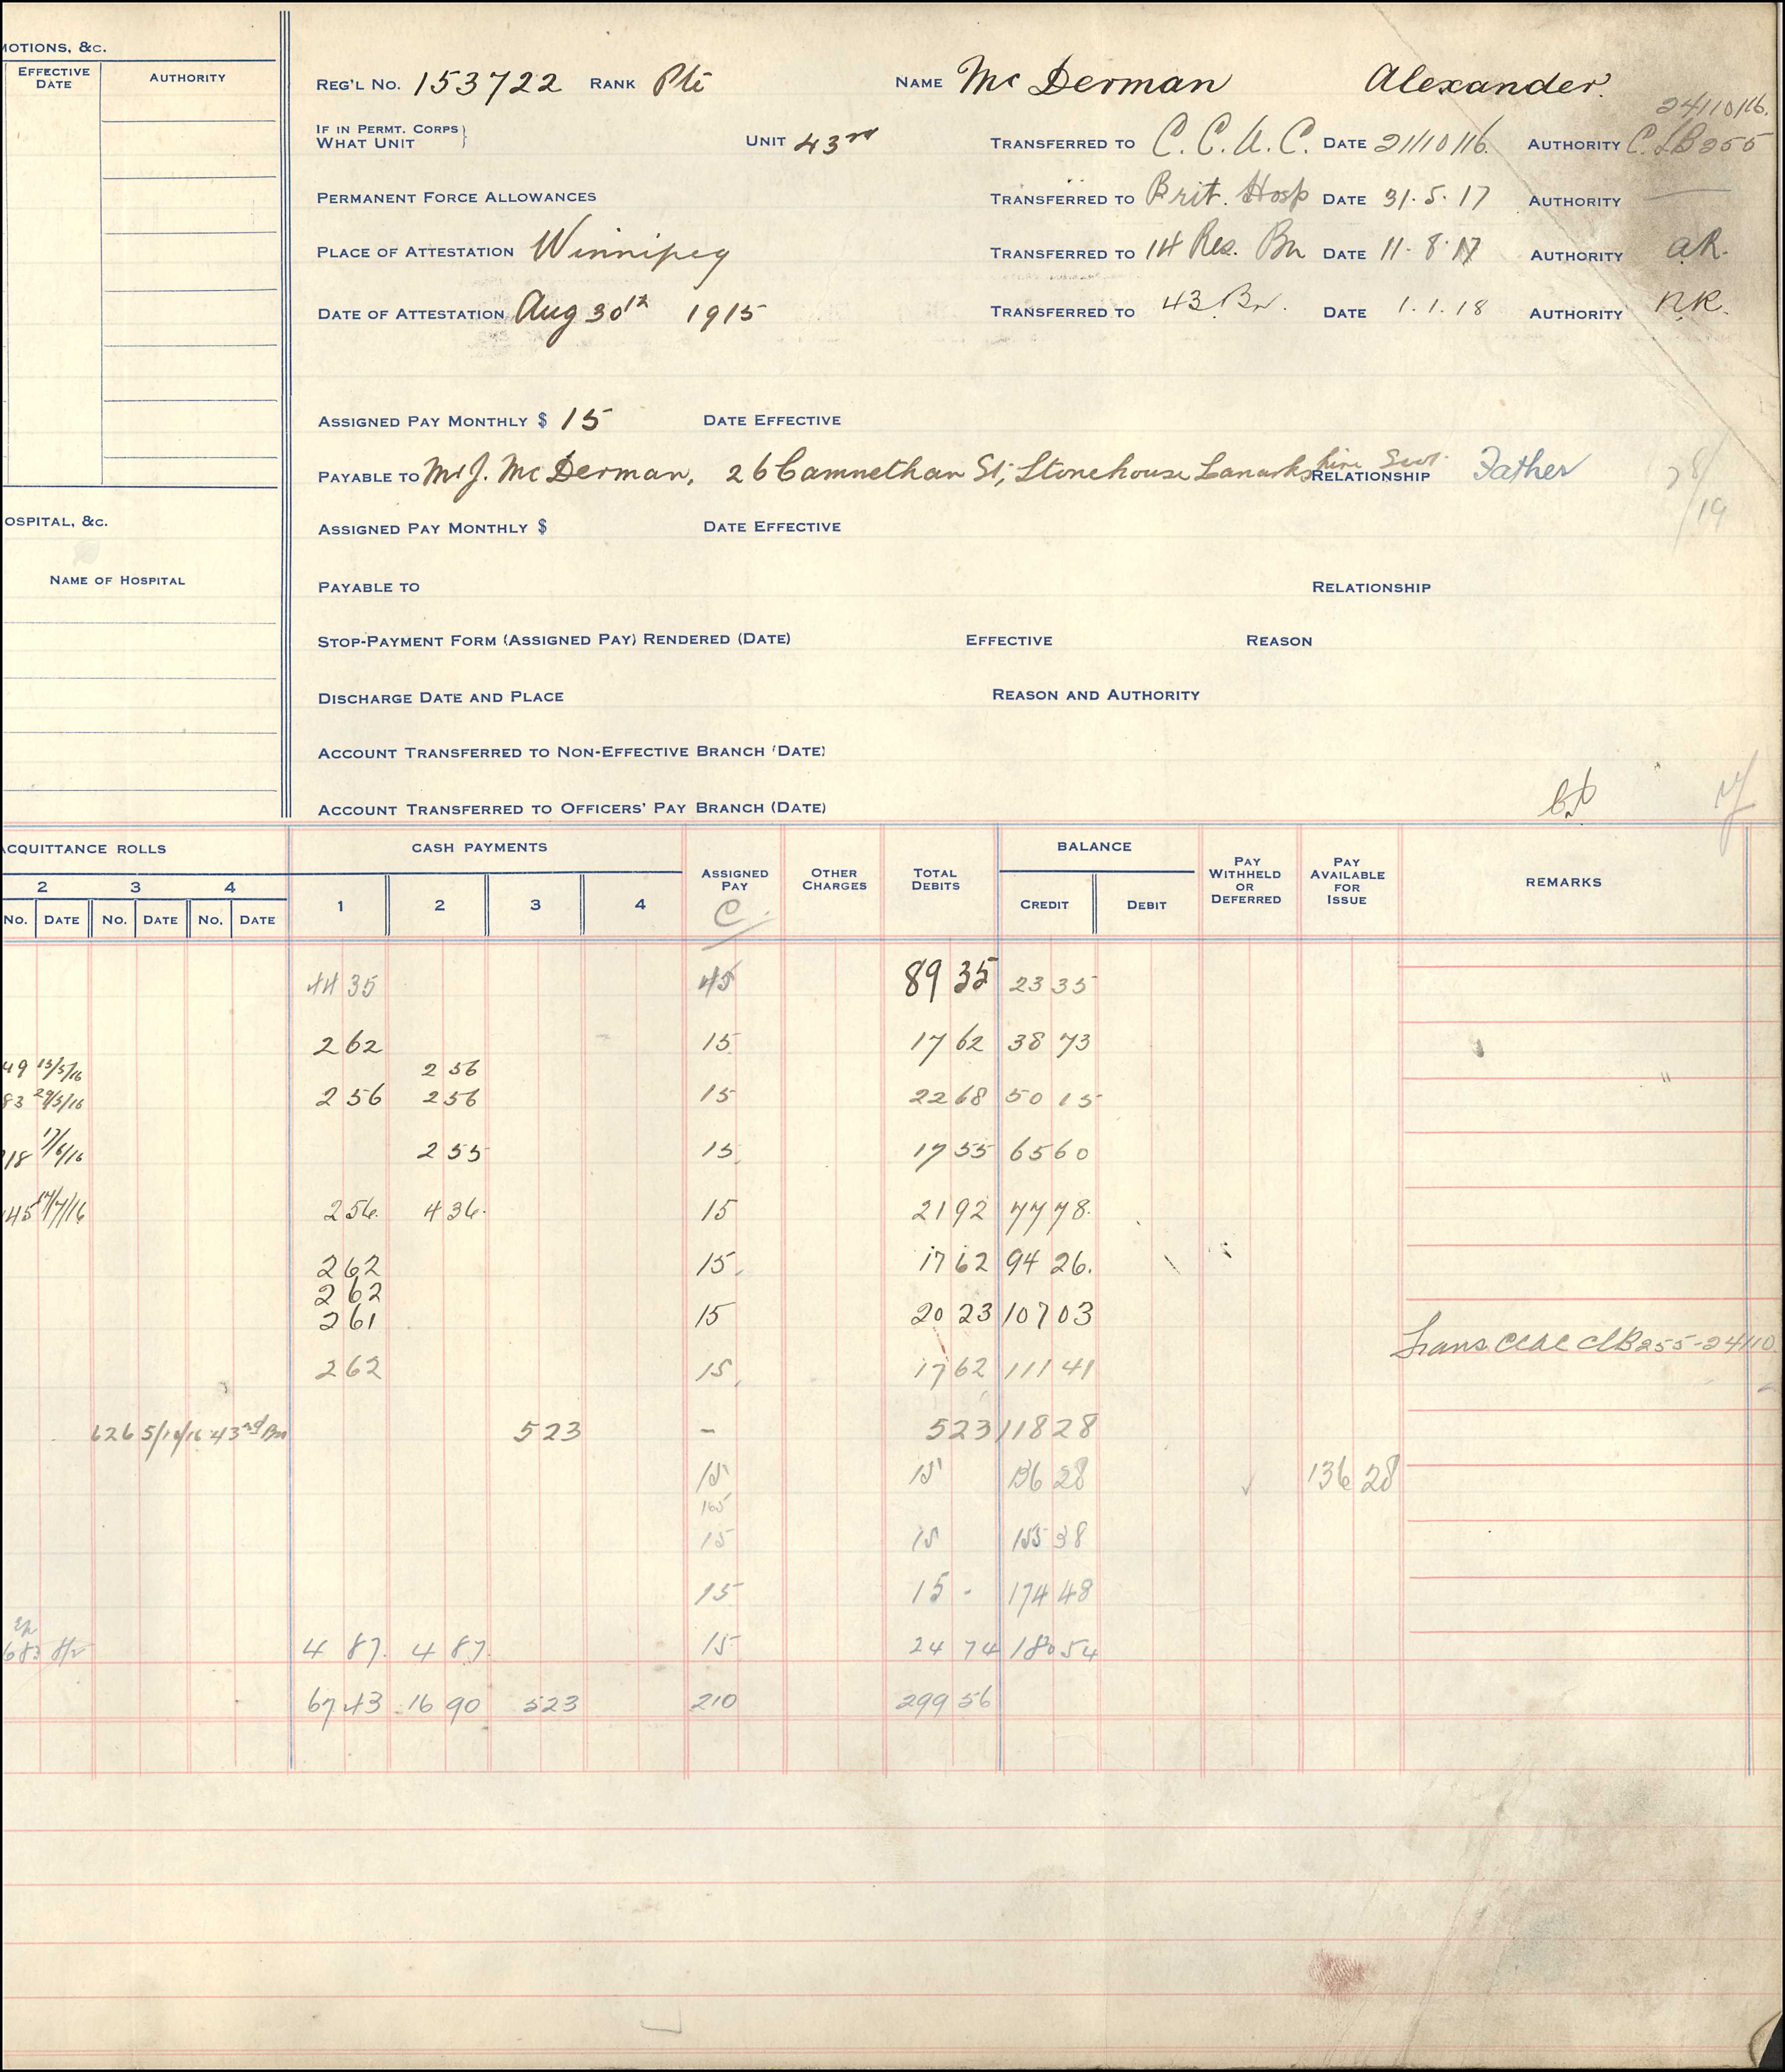 MOTIONS, &C.
EFFECTIVE DATE AUTHORITY
REG'L NO. 153722 RANK Pte NAME Mc Derman Alexander.
24/10/16.
IF IN PERMT. CORPS } WHAT UNIT UNIT 43rd TRANSFERRED TO C.C.A.C. DATE 21/10/16. AUTHORITY C.LB255
PERMANENT FORCE ALLOWANCES TRANSFERRED TO Brit. Hosp DATE 31.5.17 AUTHORITY —
PLACE OF ATTESTATION Winnipeg TRANSFERRED TO 14 Res. Bn DATE 11.8.17 AUTHORITY a.R.
DATE OF ATTESTATION Aug 30th 1915 TRANSFERRED TO 43 Bn. DATE 1.1.18 AUTHORITY N.R.
ASSIGNED PAY MONTHLY $ 15 DATE EFFECTIVE
PAYABLE TO Mr J. Mc Derman, 26 Camnethan St, Stonehouse Lanarkshire Scot. RELATIONSHIP Father
OSPITAL, &C.
ASSIGNED PAY MONTHLY $ DATE EFFECTIVE
NAME OF HOSPITAL
PAYABLE TO RELATIONSHIP
STOP-PAYMENT FORM (ASSIGNED PAY) RENDERED (DATE) EFFECTIVE REASON
DISCHARGE DATE AND PLACE REASON AND AUTHORITY
ACCOUNT TRANSFERRED TO NON-EFFECTIVE BRANCH (DATE)
ACCOUNT TRANSFERRED TO OFFICERS' PAY BRANCH (DATE)
ACQUITTANCE ROLLS CASH PAYMENTS ASSIGNED PAY OTHER CHARGES TOTAL DEBITS BALANCE PAY WITHHELD OR DEFERRED PAY AVAILABLE FOR ISSUE REMARKS
2 3 4 1 2 3 4 CREDIT DEBIT
NO. DATE NO. DATE NO. DATE
C
44 35 45 89 35 23 35
2 62 15 17 62 38 73
49 15/5/16 2 56
83 29/5/16 2 56 2 56 15 22 68 50 15
18 17/6/16 2 55 15 17 55 65 60
45 17/7/16 2 56 4 36 15 21 92 77 78
2 62 15 17 62 94 26
2 62
2 61 15 20 23 107 03
Trans CCAC CLB255-24/10
2 62 15 17 62 111 41
626 5/10/16 43rd Bn 5 23 - 5 23 118 28
15 15 136 28 136 28
165
15 15 155 38
15 15 - 174 48
683 8/2 4 87 4 87 15 24 74 180 54
67 43 16 90 5 23 210 299 56